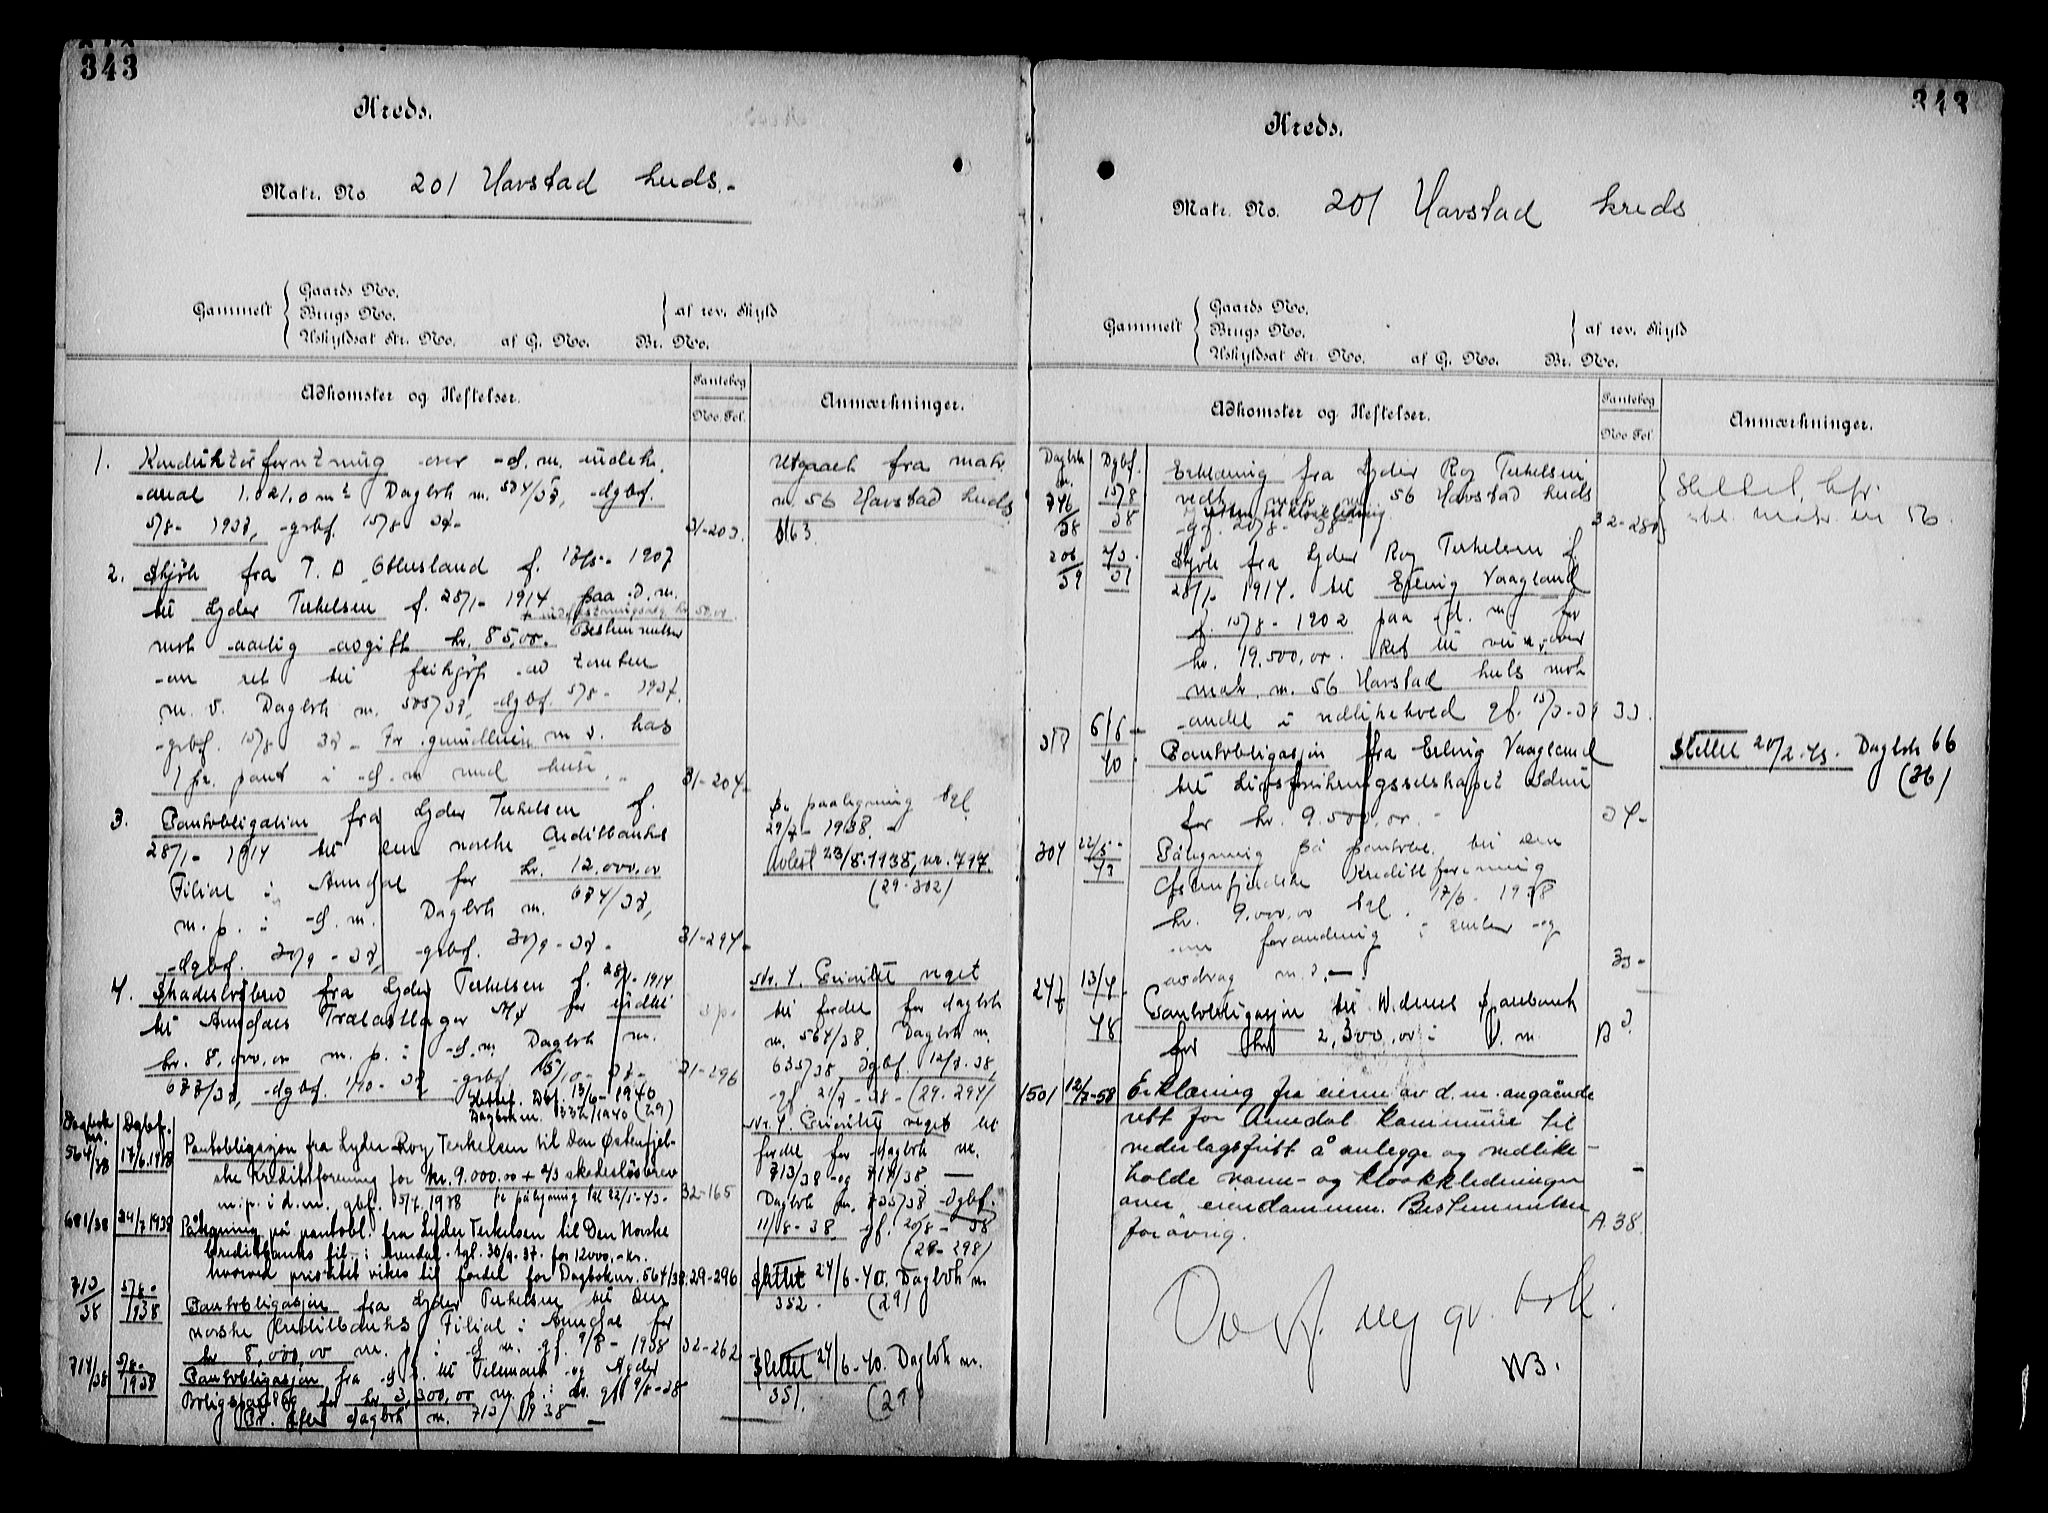 343
Kreds.
Matr. No. 201 Havstad kreds.
Gammelt
Gaards No.
Brugs No.
af rev. Skyld
Uskyldsat Str. No. af G. No. Br. No.
Adkomster og Heftelser.
Pantebog
No. Fol.
Anmærkninger.
1. Konduktørforretning over d. m. indeh.
areal 1.021,0 m² Dagbok nr. 584/37, dgbf.
5/8- 1937, grbf. 15/8 37-
31-203.
Utgaaet fra matr.
nr. 56 Havstad kreds
163.
2. Skjøte fra T. O. f. 1907
til Lyder Terkelsen f. 28/1- 1914 paa d. m.
mot aarlig avgift kr. 85,00. Bestemmelser
om ret til frikjøp av tomten
m. v. Dagbok nr. 585/37, dgbf. 5/8- 1937.
grbf. 15/8 37- For grundleien m. v. has
1 pr. pant i d. m. med huse.
31-204-
3. Pantobligation fra Lyder Terkelsen f.
28/1- 1914 til den norske Creditbanks
Filial i Arendal for kr. 12.000,00
m. p. i d. m. Dagbok nr. 674/37,
dgbf. 30/9- 37, grbf. 30/9-37-
31-294-
Se paategning tgl.
29/7- 1938.
Avlest 23/8.1938, nr. 797.
(29-302)
4. Skadesløsbrev fra Lyder Terkelsen f. 28/1- 1914
til Arendals Trælastlager A/S for indtil
kr. 8,000,00 m. p. i d. m. Dagbok nr.
677/37, dgbf. 1/10- 37 grbf. 15/10- 37-
31-296
Slettet. Dbf. 13/6- 1940
Dagbok nr. 332/1940 (29)
Nr. 4. Prioritet veget
til fordel for dagbok
nr. 564/38. Dagbok nr.
635/38, dgbf. 12/7.38,
gf. 21/7-38- (29-294)
Nr. 4. Prioritet veget til
fordel for dagbok nr.
713/38 og 714/38.
Dagbok nr. 735/38 dgbf.
11/8-38 gf. 20/8-38
(29-298)
Dagbok nr. Dgbf.
564/38 17/6.1938 Pantobligasjon fra Lyder Roy Terkelsen til Den Østenfjel-
ske Kreditforening for kr. 9.000.00 + 2/3 skadesløsbrev
m. p. i d. m. gbf. 15/7. 1938 Se påtegning tgl 22/5-43-
32-165
681/38 29/7.1938 Påtegning på pantobl. fra Lyder Terkelsen til Den Norske
Creditbanks fil. i Arendal. tgl. 30/9.37. for 12000,- kr.
hvorved prioritet vikes til fordel for Dagbok nr. 564/38.
29-296
713/38 5/8- 1938 Pantobligasjon fra Lyder Terkelsen til Den
norske Creditbanks Filial i Arendal for
kr 8,000,00 m. p. i d. m. gf. 9/8- 1938
32-262
Slettet 24/6-40. Dagbok nr.
352. (29)
714/38 5/8- 1938 Pantobligasjon fra d. s. til Telemark og Agder
for kr 3,300,00 m. p. i d. m. gf 9/8-38
Pr. efter dagbok nr. 713/1938
Slettet 24/6-40. Dagbok nr.
351. (29)
343
Kreds.
Matr. No. 201 Havstad kreds
Gammelt
Gaards No.
Brugs No.
af rev. Skyld
Uskyldsat Str. No. af G. No. Br. No.
Adkomster og Heftelser.
Pantebog
No. Fol.
Anmærkninger.
Dagbok nr. Dgbf.
746/38 15/8 38 Erklæring fra Lyder Roy Terkelsen
vedr. matr. nr. 56 Havstad kreds
gf. 20/8- 38
32-280
Slettet, jfr.
bl. matr. nr 56.
206/39 Skjøte fra Lyder Roy Terkelsen f.
28/1- 1914. til Erling Vaagland
f. 15/8- 1902 paa d. m. for
kr. 19.500,00. Ret til vei over
matr. nr. 56 Havstad kreds mot
andel i vedlikehold gf. 15/3-39
33.
317 6/6- 40. Pantobligasjon fra Erling Vaagland
til Livsforsikringsselskapet Idun
for kr. 9.500,00.
34-
Slettet 20/2-43. Dagbok 66
(36)
304 22/5- 43 Påtegning på pantobl. til den
Østenfjeldske Kreditforening
kr. 9.000,00 tgl. 17/6- 1938
om forandring i renter og
avdrag m. v.
33-
247 13/4- 48 Pantobligasjon til sparebank
for kr 2,300,00 i d. m.
B 3.
1501 12/7-58 Erklæring fra eierne av d. m. angående
rett for Arendal Kommune til
vederlagsfritt å anlegge og vedlike-
holde vann- og kloakkledninger
over eiendommen. Bestemmelser
forøvrig.
A. 38
NB.